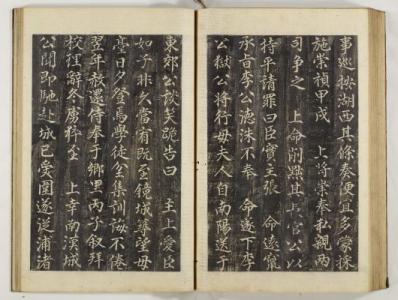 事巡按湖西其條奏便宜多蒙採
施崇禎甲戌 上將崇奉私親兩
司爭之 上命削黜其長官公以
持平請罪曰臣實主張 命遂竄
承旨李公德洙不奉 命遂下李
公獄公將行母夫人自南陽送于
東郊公談笑跪告曰 主上愛臣
如子非久當宥既至鏡城築望母
臺日夕登焉學徒坌集訓誨不倦
翌年赦還侍奉于鄉里丙子叙拜
校理辭冬虜猝至 上幸南漢城
公聞即馳赴城已受圍遂從浦渚